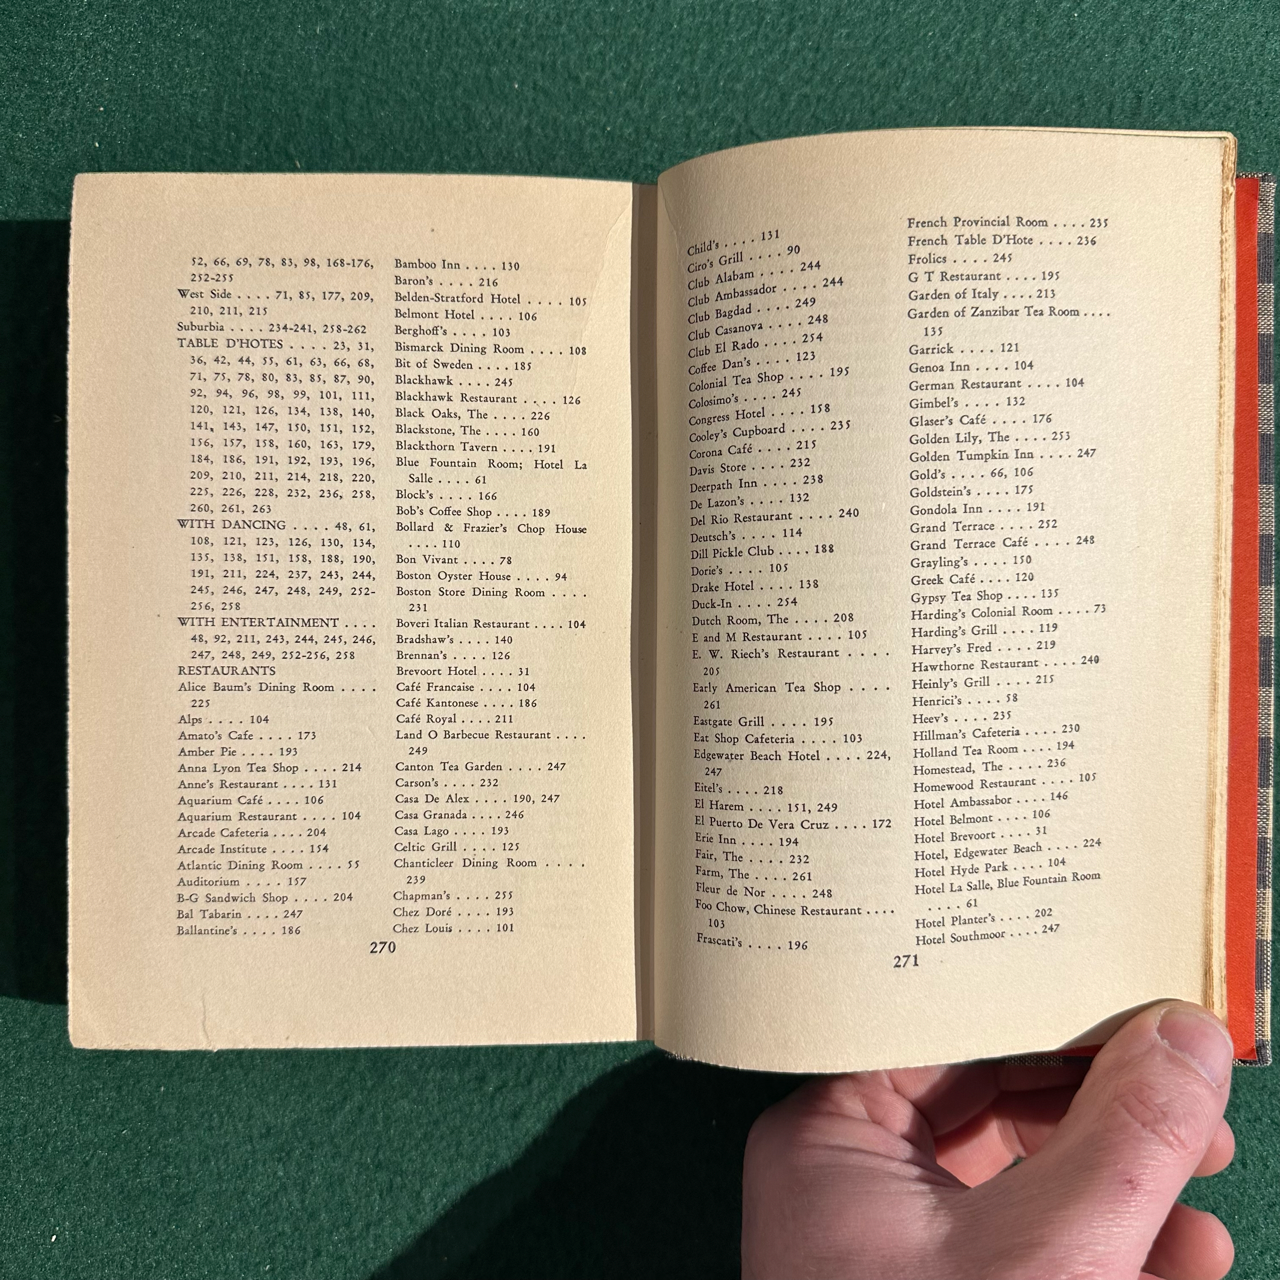 52, 66, 69, 78, 83, 98, 168-176,
252-255
West Side . . . . 71, 85, 177, 209,
210, 211, 215
Suburbia . . . . 234-241, 258-262
TABLE D'HOTES . . . . 23, 31,
36, 42, 44, 55, 61, 63, 66, 68,
71, 75, 78, 80, 83, 85, 87, 90,
92, 94, 96, 98, 99, 101, 111,
120, 121, 126, 134, 138, 140,
141, 143, 147, 150, 151, 152,
156, 157, 158, 160, 163, 179,
184, 186, 191, 192, 193, 196,
209, 210, 211, 214, 218, 220,
225, 226, 228, 232, 236, 258,
260, 261, 263
WITH DANCING . . . . 48, 61,
108, 121, 123, 126, 130, 134,
135, 138, 151, 158, 188, 190,
191, 211, 224, 237, 243, 244,
245, 246, 247, 248, 249, 252-
256, 258
WITH ENTERTAINMENT . . . .
48, 92, 211, 243, 244, 245, 246,
247, 248, 249, 252-256, 258
RESTAURANTS
Alice Baum's Dining Room . . . .
225
Alps . . . . 104
Amato's Cafe . . . . 173
Amber Pie . . . . 193
Anna Lyon Tea Shop . . . . 214
Anne's Restaurant . . . . 131
Aquarium Café . . . . 106
Aquarium Restaurant . . . . 104
Arcade Cafeteria . . . . 204
Arcade Institute . . . . 154
Atlantic Dining Room . . . . 55
Auditorium . . . . 157
B-G Sandwich Shop . . . . 204
Bal Tabarin . . . . 247
Ballantine's . . . . 186
Bamboo Inn . . . . 130
Baron's . . . . 216
Belden-Stratford Hotel . . . . 105
Belmont Hotel . . . . 106
Berghoff's . . . . 103
Bismarck Dining Room . . . . 108
Bit of Sweden . . . . 185
Blackhawk . . . . 245
Blackhawk Restaurant . . . . 126
Black Oaks, The . . . . 226
Blackstone, The . . . . 160
Blackthorn Tavern . . . . 191
Blue Fountain Room; Hotel La
Salle . . . . 61
Block's . . . . 166
Bob's Coffee Shop . . . . 189
Bollard & Frazier's Chop House
. . . . 110
Bon Vivant . . . . 78
Boston Oyster House . . . . 94
Boston Store Dining Room . . . .
231
Boveri Italian Restaurant . . . . 104
Bradshaw's . . . . 140
Brennan's . . . . 126
Brevoort Hotel . . . . 31
Café Francaise . . . . 104
Café Kantonese . . . . 186
Café Royal . . . . 211
Land O Barbecue Restaurant . . . .
249
Canton Tea Garden . . . . 247
Carson's . . . . 232
Casa De Alex . . . . 190, 247
Casa Granada . . . . 246
Casa Lago . . . . 193
Celtic Grill . . . . 125
Chanticleer Dining Room . . . .
239
Chapman's . . . . 255
Chez Doré . . . . 193
Chez Louis . . . . 101
270
Child's . . . . 131
Ciro's Grill . . . . 90
Club Alabam . . . . 244
Club Ambassador . . . . 244
Club Bagdad . . . . 249
Club Casanova . . . . 248
Club El Rado . . . . 254
Coffee Dan's . . . . 123
Colonial Tea Shop . . . . 195
Colosimo's . . . . 245
Congress Hotel . . . . 158
Cooley's Cupboard . . . . 235
Corona Café . . . . 215
Davis Store . . . . 232
Deerpath Inn . . . . 238
De Lazon's . . . . 132
Del Rio Restaurant . . . . 240
Deutsch's . . . . 114
Dill Pickle Club . . . . 188
Dorie's . . . . 105
Drake Hotel . . . . 138
Duck-In . . . . 254
Dutch Room, The . . . . 208
E and M Restaurant . . . . 105
E. W. Riech's Restaurant . . . .
205
Early American Tea Shop . . . .
261
Eastgate Grill . . . . 195
Eat Shop Cafeteria . . . . 103
Edgewater Beach Hotel . . . . 224,
247
Eitel's . . . . 218
El Harem . . . . 151, 249
El Puerto De Vera Cruz . . . . 172
Erie Inn . . . . 194
Fair, The . . . . 232
Farm, The . . . . 261
Fleur de Nor . . . . 248
Foo Chow, Chinese Restaurant . . . .
103
Frascati's . . . . 196
French Provincial Room . . . . 235
French Table D'Hote . . . . 236
Frolics . . . . 245
G T Restaurant . . . . 195
Garden of Italy . . . . 213
Garden of Zanzibar Tea Room . . . .
135
Garrick . . . . 121
Genoa Inn . . . . 104
German Restaurant . . . . 104
Gimbel's . . . . 132
Glaser's Café . . . . 176
Golden Lily, The . . . . 253
Golden Tumpkin Inn . . . . 247
Gold's . . . . 66, 106
Goldstein's . . . . 175
Gondola Inn . . . . 191
Grand Terrace . . . . 252
Grand Terrace Café . . . . 248
Grayling's . . . . 150
Greek Café . . . . 120
Gypsy Tea Shop . . . . 135
Harding's Colonial Room . . . . 73
Harding's Grill . . . . 119
Harvey's Fred . . . . 219
Hawthorne Restaurant . . . . 240
Heinly's Grill . . . . 215
Henrici's . . . . 58
Heev's . . . . 235
Hillman's Cafeteria . . . . 230
Holland Tea Room . . . . 194
Homestead, The . . . . 236
Homewood Restaurant . . . . 105
Hotel Ambassabor . . . . 146
Hotel Belmont . . . . 106
Hotel Brevoort . . . . 31
Hotel, Edgewater Beach . . . . 224
Hotel Hyde Park . . . . 104
Hotel La Salle, Blue Fountain Room
. . . . 61
Hotel Planter's . . . . 202
Hotel Southmoor . . . . 247
271